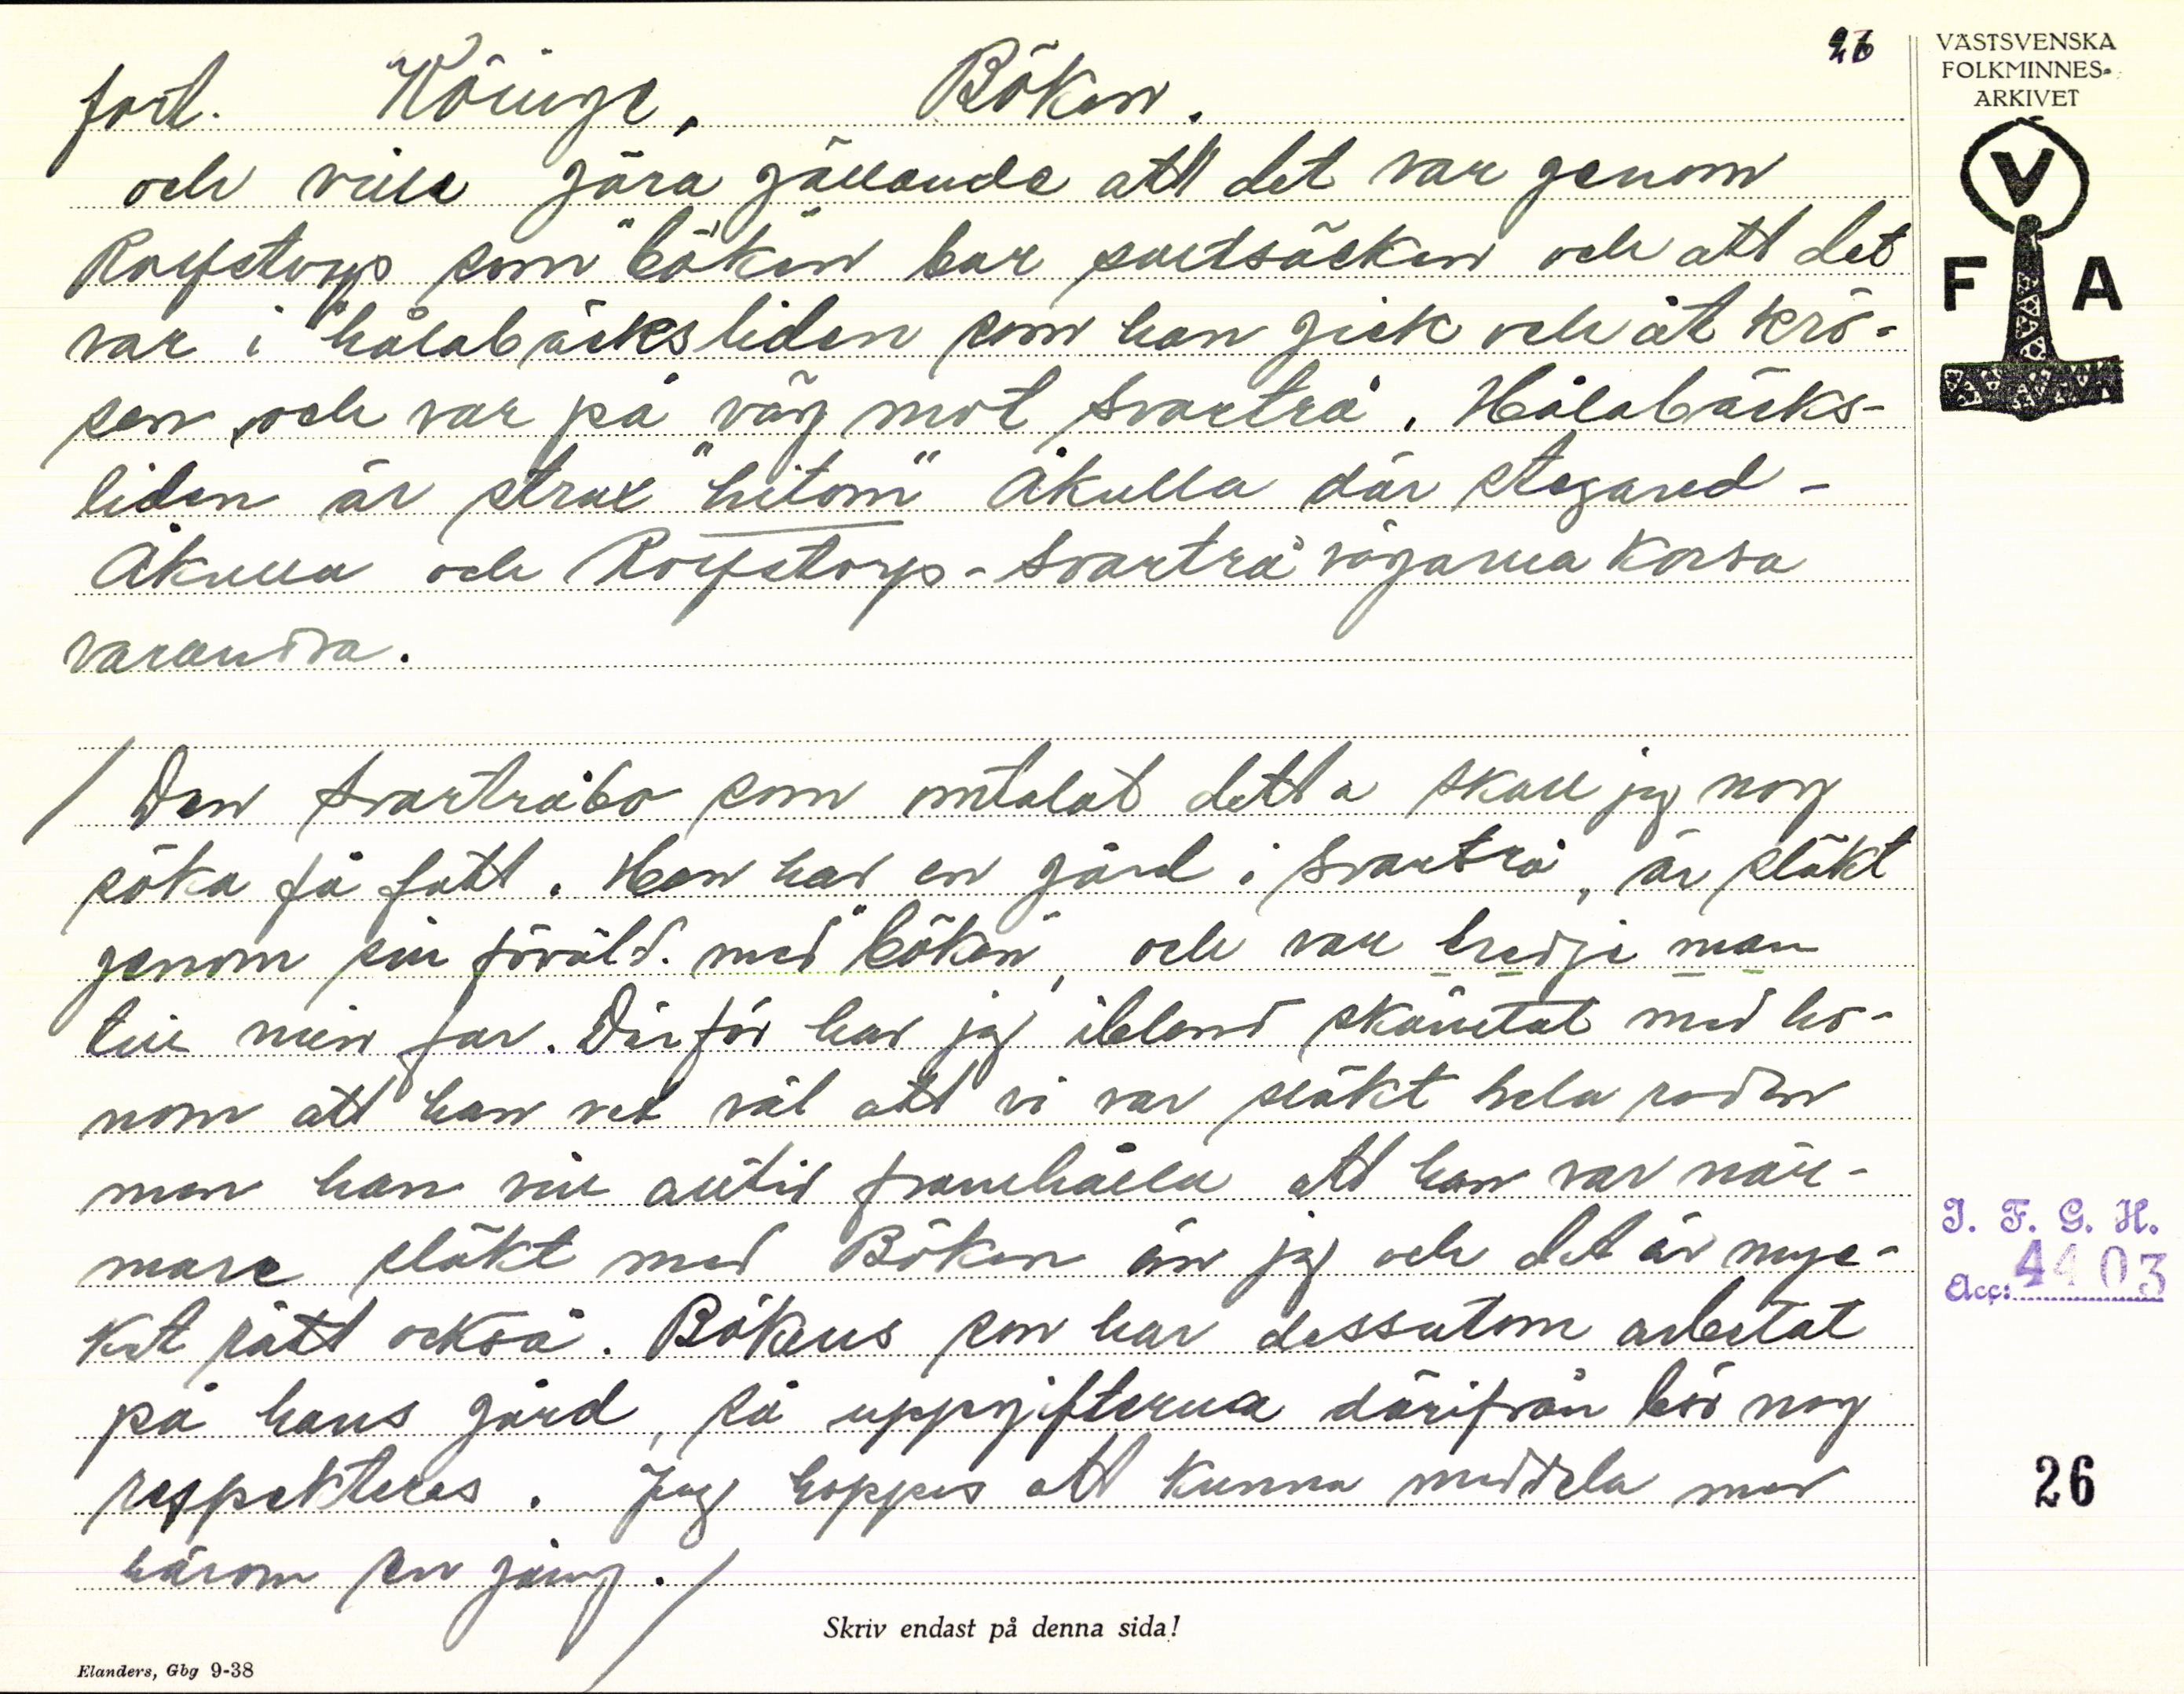 26
fort. Köinge, Böken.
och ville göra gällande att det var genom
Rolfstorp som "böken" bar saltsäcken och att det
var i hålabäcksliden som han gick och åt krö-
sen, och var på väg mot Svartrå. Hålabäcks-
liden är strax "hitom" Åkulla där Stegared-
Åkulla och Rolfstorp-Svartrå vägarna korsa
varandra.
/ Den Svartråbo som omtalat detta skall jag nog
söka få fatt. Han har en gård i Svartrå, är släkt
genom sin föräld. med "böken", och var tredje man
till min far. Därför har jag ibland skämtat med ho-
nom att han vet väl att vi var släkt hela raden
men han vill alltid framhålla att han var när-
mare släkt med Böken än jag och det är myc-
ket rätt också. Bökens son har dessutom arbetat
på hans gård, så uppgifterna därifrån bör nog
respekteras. Jag hoppas att kunna meddela mer
härom en gång. /
Skriv endast på denna sida!
Elanders, Gbg 9-38
VÄSTSVENSKA
FOLKMINNES-
ARKIVET
V
F A
I. F. G. H.
Acc: 4403
26